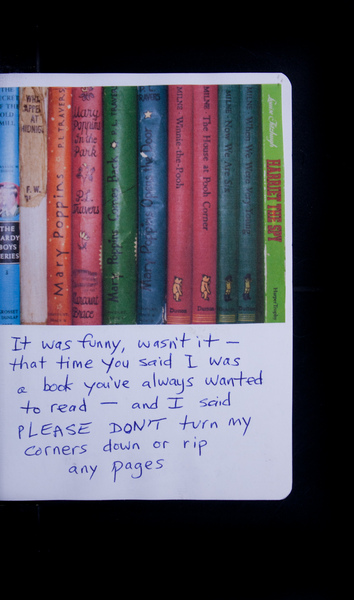 THE
SECRET
OF THE
OLD
MILL
THE
HARDY
BOYS
SERIES
4
WHAT
HAPPENED
AT
MIDNIGHT
F. W.
Mary Poppins P. L. TRAVERS
Mary
Poppins
In the
Park
P. L.
Travers
Harcourt
Brace
Mary Poppins Comes Back P. L. TRAVERS
Mary Poppins Opens the Door
TRAVERS
MILNE Winnie-the-Pooh
Dutton
MILNE The House at Pooh Corner
Dutton
MILNE Now We Are Six
MILNE When We Were Very Young
Louise Fitzhugh HARRIET THE SPY
HarperTrophy
It was funny, wasn't it —
that time you said I was
a book you've always wanted
to read — and I said
PLEASE DON'T turn my
corners down or rip
any pages